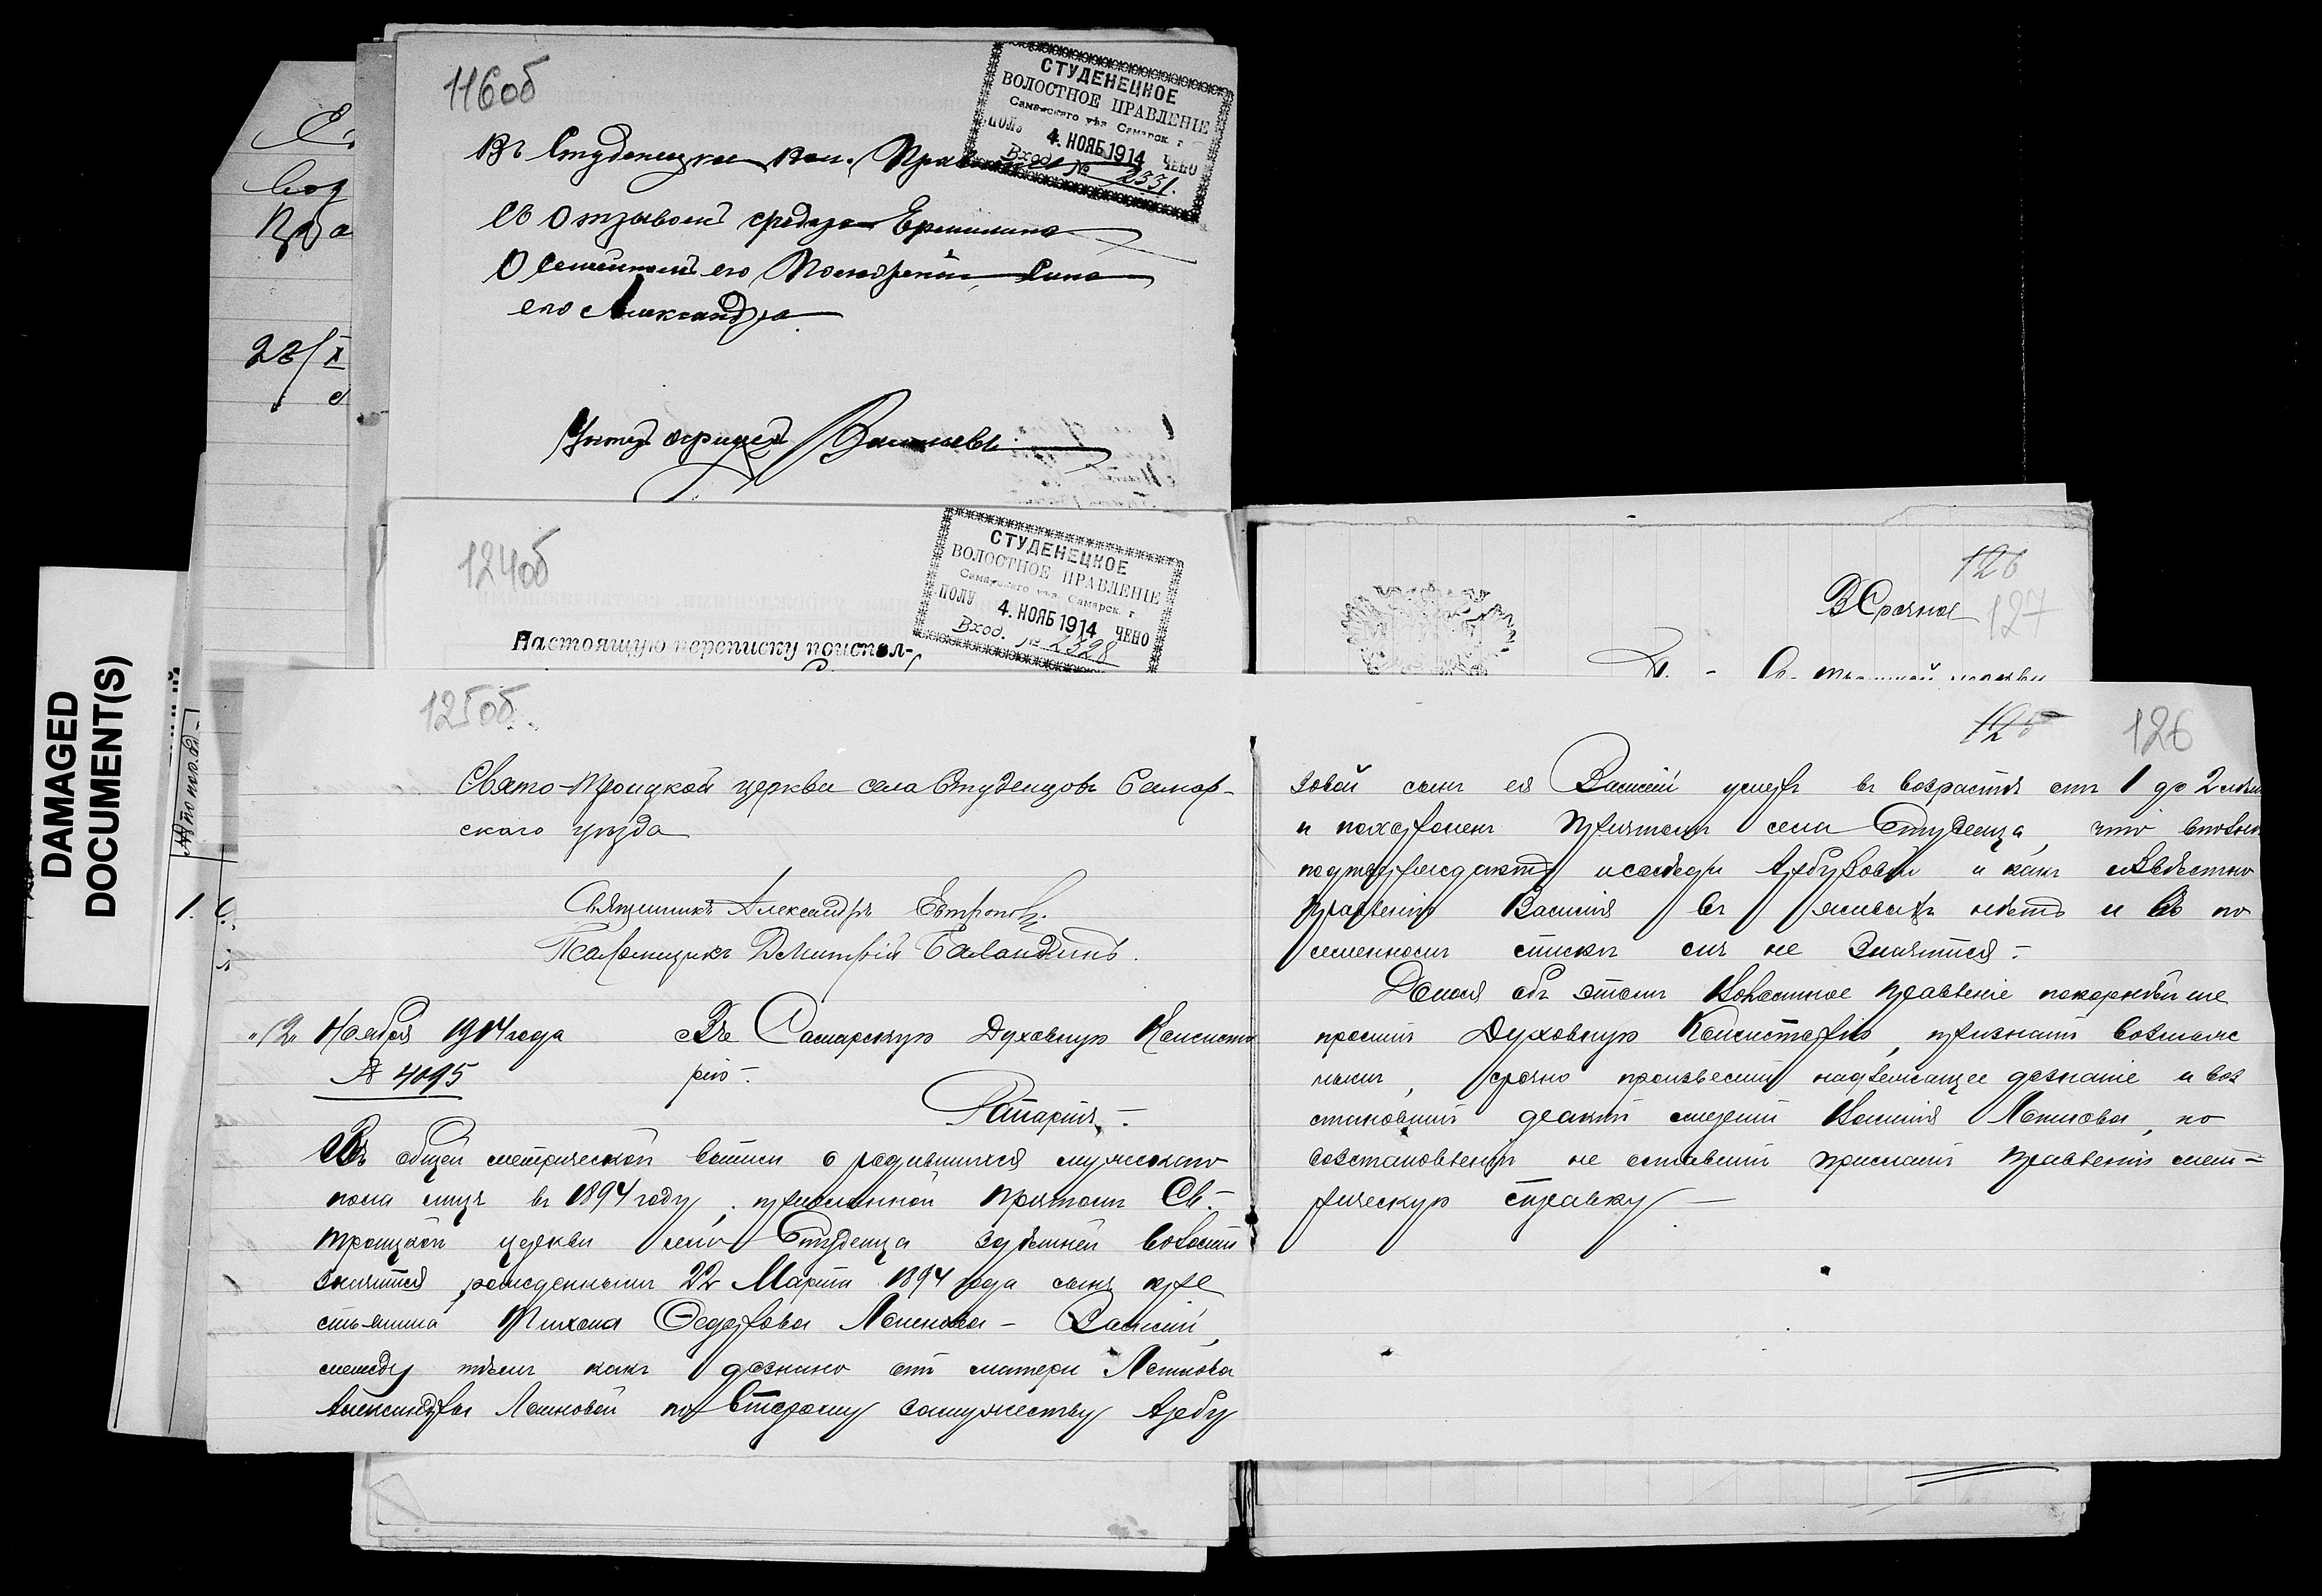 116об
СТУДЕНЕЦКОЕ
ВОЛОСТНОЕ ПРАВЛЕНІЕ
Самарского уѣз. Самарск. г
ПОЛУ 4. НОЯБ 1914 ЧЕНО
Вход. № 2331.
Въ Студенецкое Вол. Правленіе
Съ отзывомъ
О семейномъ его
его Александра
Васильевъ
С.
28/X
124об
СТУДЕНЕЦКОЕ
ВОЛОСТНОЕ ПРАВЛЕНІЕ
Самарского уѣз. Самарск. г
ПОЛУ 4. НОЯБ 1914 ЧЕНО
Вход. № 2328
Настоящую переписку поиспол-
126
127
ВСрочная
DAMAGED
DOCUMENT(S)
1.
125об.
Свято-Троицкой церкви села Студенцовъ Самар-
скаго уѣзда
Священникъ Александръ
Псаломщикъ Дмитрій Баландинъ.
"12" Ноября 1914 года
№ 4095
Въ Самарскую Духовную Консисто
рію-.
Рапортъ.-
Въ общей метрической выписи о родившихся мужского
пола лицъ въ 1894 году, присланной причтомъ Св.-
Троицкой церкви села Студенца здѣшней волости
значится рожденнымъ 22 Марта 1894 года сынъ кре
стьянина Тихона Федорова Логинова - Василій,
между тѣмъ какъ дознано отъ матери Логинова
Александры Логиновой по второму замужеству Арбу
125
126
зовой сынъ ея Василій умеръ въ возрастѣ отъ 1 до 2 лѣтъ
и похороненъ причтомъ села Студенца, что вполнѣ
подтверждаютъ и сосѣди Арбузовой и какъ извѣстно
Правленію Василія въ живыхъ нѣтъ и въ по
семенномъ спискѣ онъ не значится.-
Донося объ этомъ Волостное Правленіе покорнѣйше
проситъ Духовную Консисторію, признать возмож
нымъ, срочно произвести надлежащее дознаніе и воз
становить о смерти Василія Логинова, по
возстановленіи не оставить прислать Правленію мет=
рическую справку